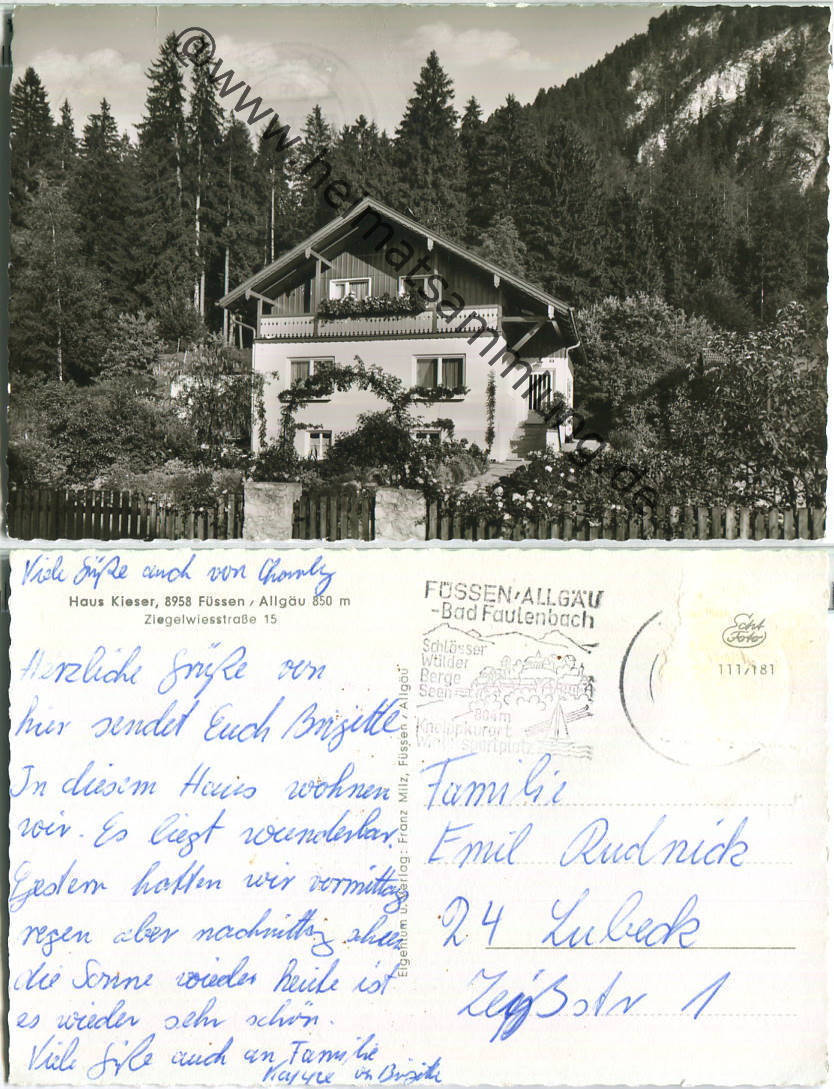 @www.heimatsammlung.de
Viele Grüße auch von
Haus Kieser, 8958 Füssen/Allgäu 850 m
Ziegelwiesstraße 15
Herzliche Grüße von
hier sendet Euch Brigitte
In diesem Haus wohnen
wir. Es liegt wunderbar.
Gestern hatten wir vormittag
regen aber nachmittag
die Sonne wieder heute ist
es wieder sehr schön.
Viele Grüße auch an Familie
von Brigitte
Eigentum u. Verlag: Franz Milz, Füssen/Allgäu
FÜSSEN/ALLGÄU
-Bad Faulenbach
Schlösser
Wälder
Berge
Seen
804m
Kneippkurort
Wintersportplatz
Echt
Foto
111/181
Familie
Emil Rudnick
24 Lubeck
Zeißstr 1